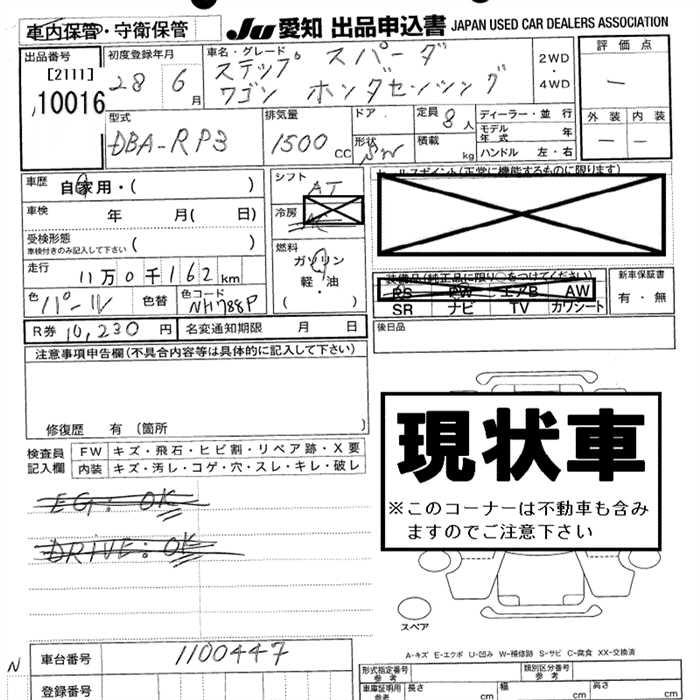 車内保管・守衛保管
JU 愛知 出品申込書 JAPAN USED CAR DEALERS ASSOCIATION
出品番号 [2111] 10016
初度登録年月 28 6月
車名・グレード ステップ スパーダ
ワゴン ホンダセンシング
2WD・4WD
評価点 —
外装 内装
— —
型式 DBA-RP3
排気量 1500 CC
ドア
形状
定員 8人
積載 kg
ディーラー・並行
モデル年式 年
ハンドル 左・右
車歴 自家用・( )
車検 年 月( 日)
受検形態 ( )
車検付きのみ記入して下さい
走行 11万0千162km
色 パール 色替 色コード NH788P
R券 10,230円 名変通知期限 月 日
シフト AT
冷房 AC
燃料
ガソリン
軽・油
( )
セールスポイント(正常に機能するものに限ります)
装備品(純正品に限り○をつけてください)
PS PW エアB AW
SR ナビ TV カワシート
新車保証書
有・無
後日品
注意事項申告欄(不具合内容等は具体的に記入して下さい)
修復歴 有(箇所 )
検査員記入欄
FW キズ・飛石・ヒビ割・リペア跡・X要
内装 キズ・汚し・コゲ・穴・スレ・キレ・破レ
EG:OK
DRIVE:OK
現状車
※このコーナーは不動車も含みますのでご注意下さい
スペア
A-キズ E-エクボ U-凹み W-補修跡 S-サビ C-腐食 XX-交換済
N
車台番号 1100447
登録番号
形式指定番号 参考
類別区分番号 参考
車庫証明用 参考
長さ cm 幅 cm 高さ cm